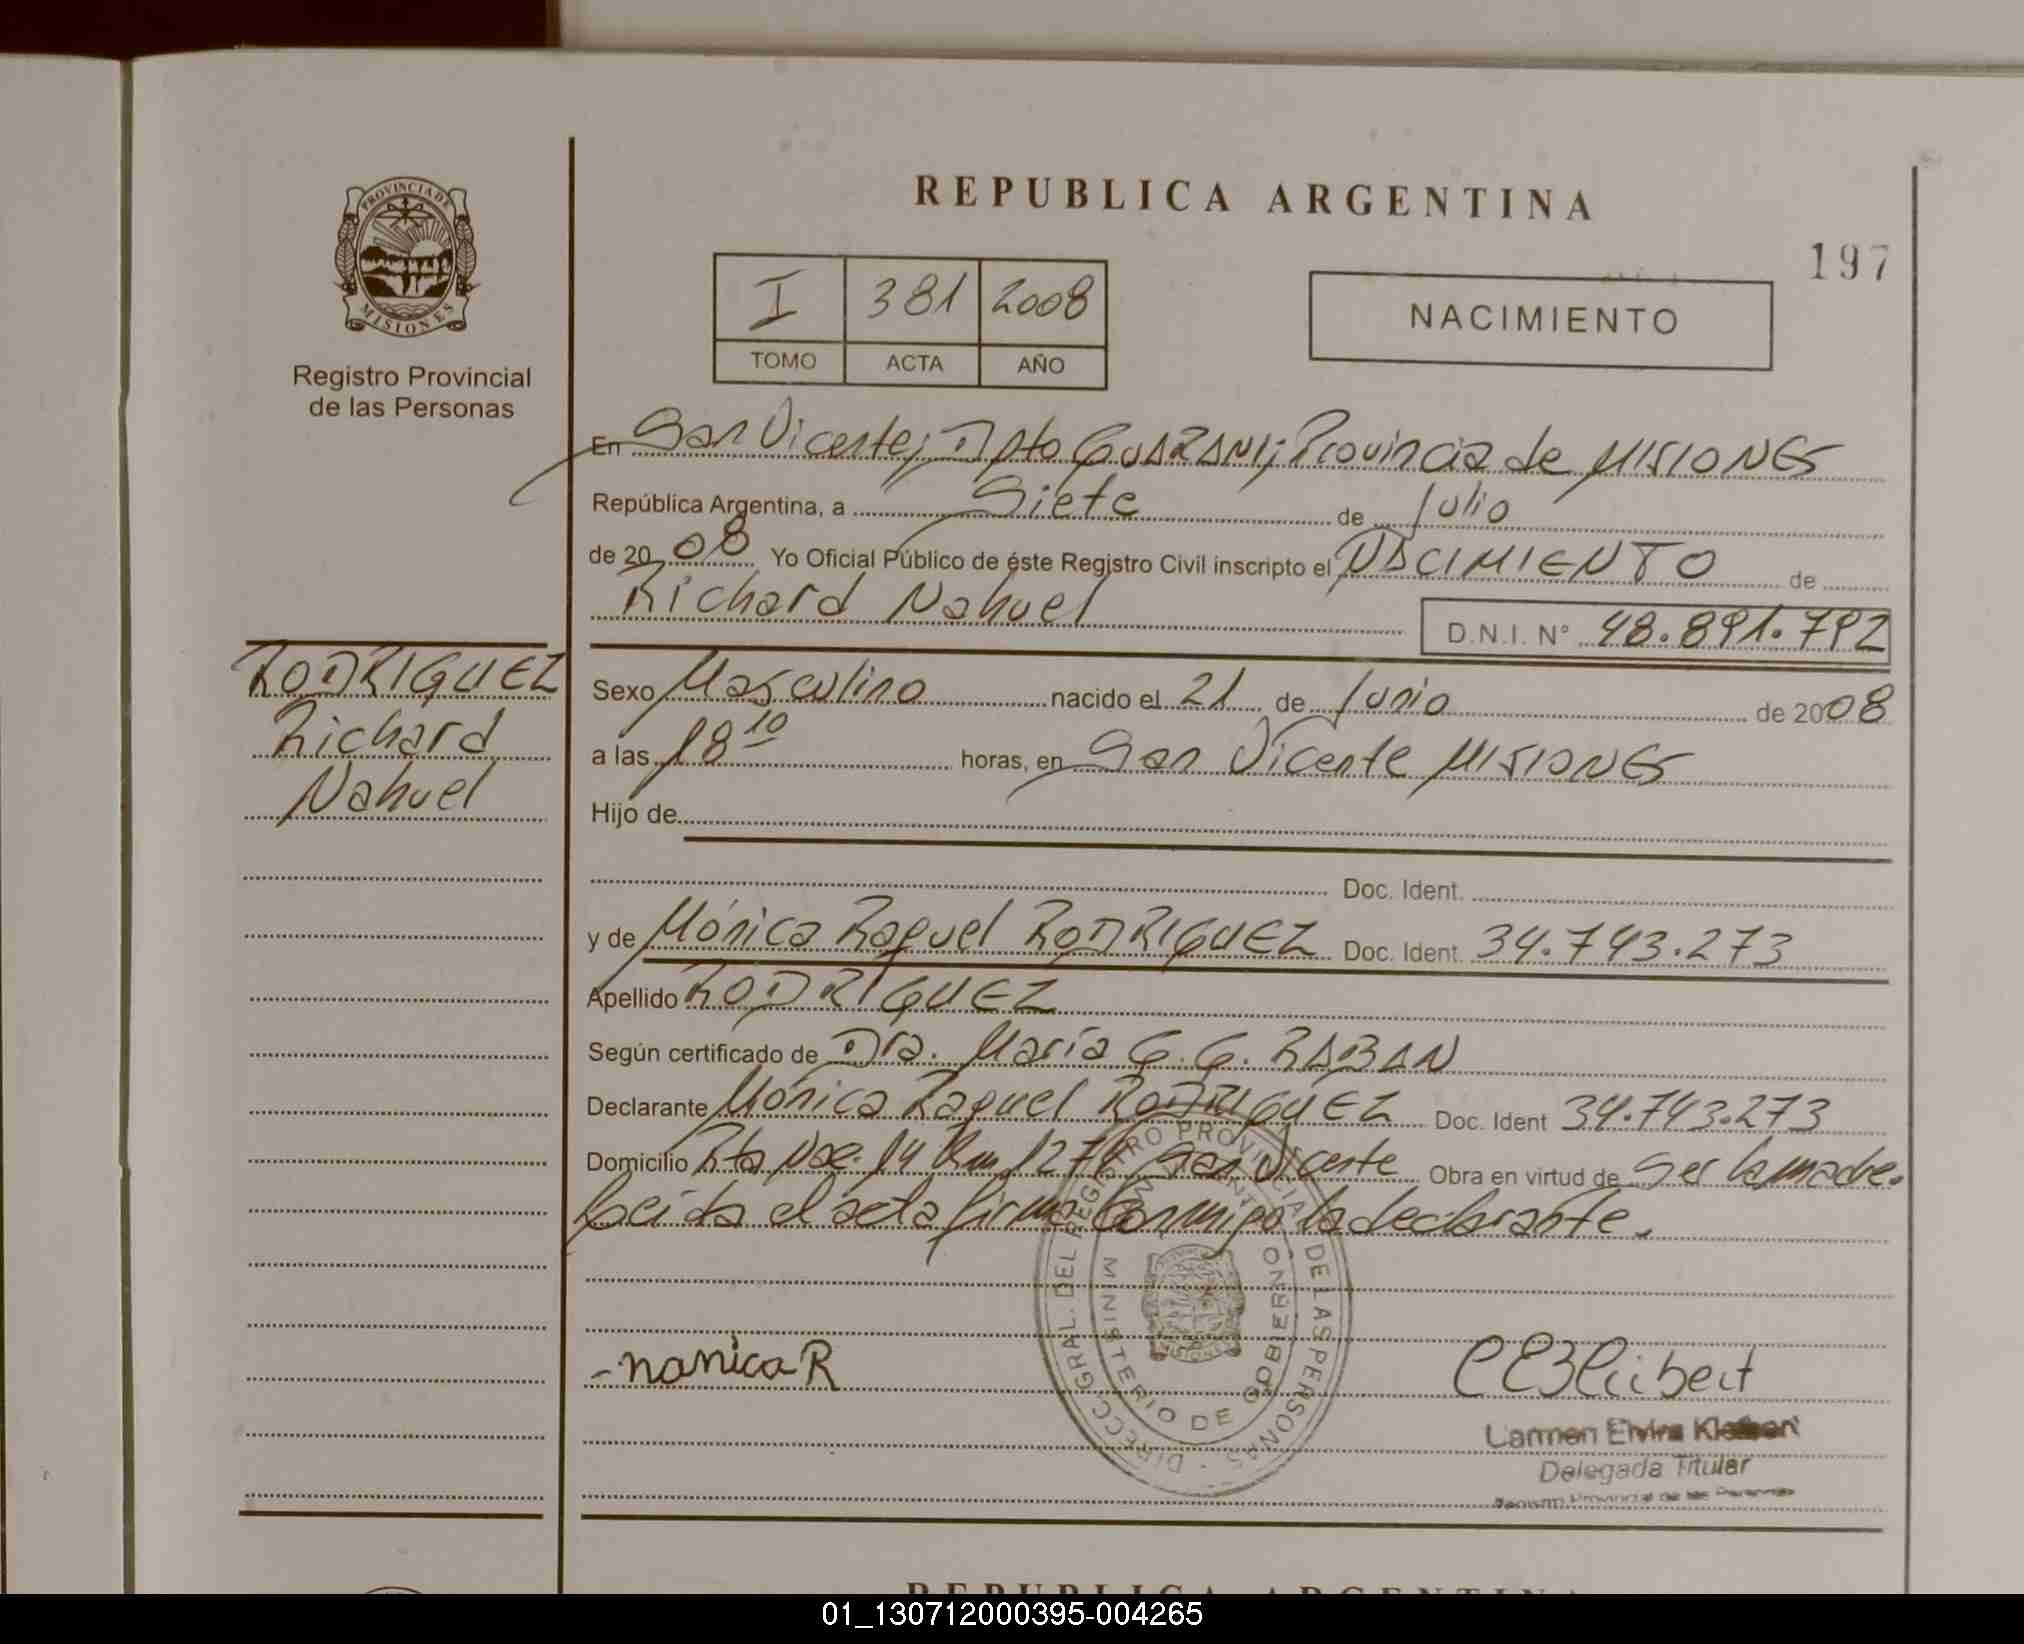 REPUBLICA ARGENTINA
197
PROVINCIA DE
MISIONES
Registro Provincial
de las Personas
I 381 2008
TOMO ACTA AÑO
NACIMIENTO
En San Vicente, Dpto GUARANI; Provincia de MISIONES
República Argentina, a Siete de Julio
de 2008 Yo Oficial Público de éste Registro Civil inscripto el NACIMIENTO de
Richard Nahuel
D.N.I. N° 48.891.792
RODRIGUEZ
Richard
Nahuel
Sexo Masculino nacido el 21 de Junio de 2008
a las 18 10 horas, en San Vicente MISIONES
Hijo de
Doc. Ident.
y de Mónica Raquel RODRIGUEZ Doc. Ident. 34.743.273
Apellido RODRIGUEZ
Según certificado de Dra. María G. G. RABAN
Declarante Mónica Raquel RODRIGUEZ Doc. Ident 34.743.273
Domicilio Rta Nac. 14 Km 1271 San Vicente Obra en virtud de ser la madre.
Leída el acta firma conmigo la declarante.
DIRECC. GRAL. DEL REGISTRO PROVINCIAL DE LAS PERSONAS
MINISTERIO DE GOBIERNO
MISIONES
monica R
Carmen Elvira
Delegada Titular
Registro Provincial de las Personas
REPUBLICA ARGENTINA
01_130712000395-004265